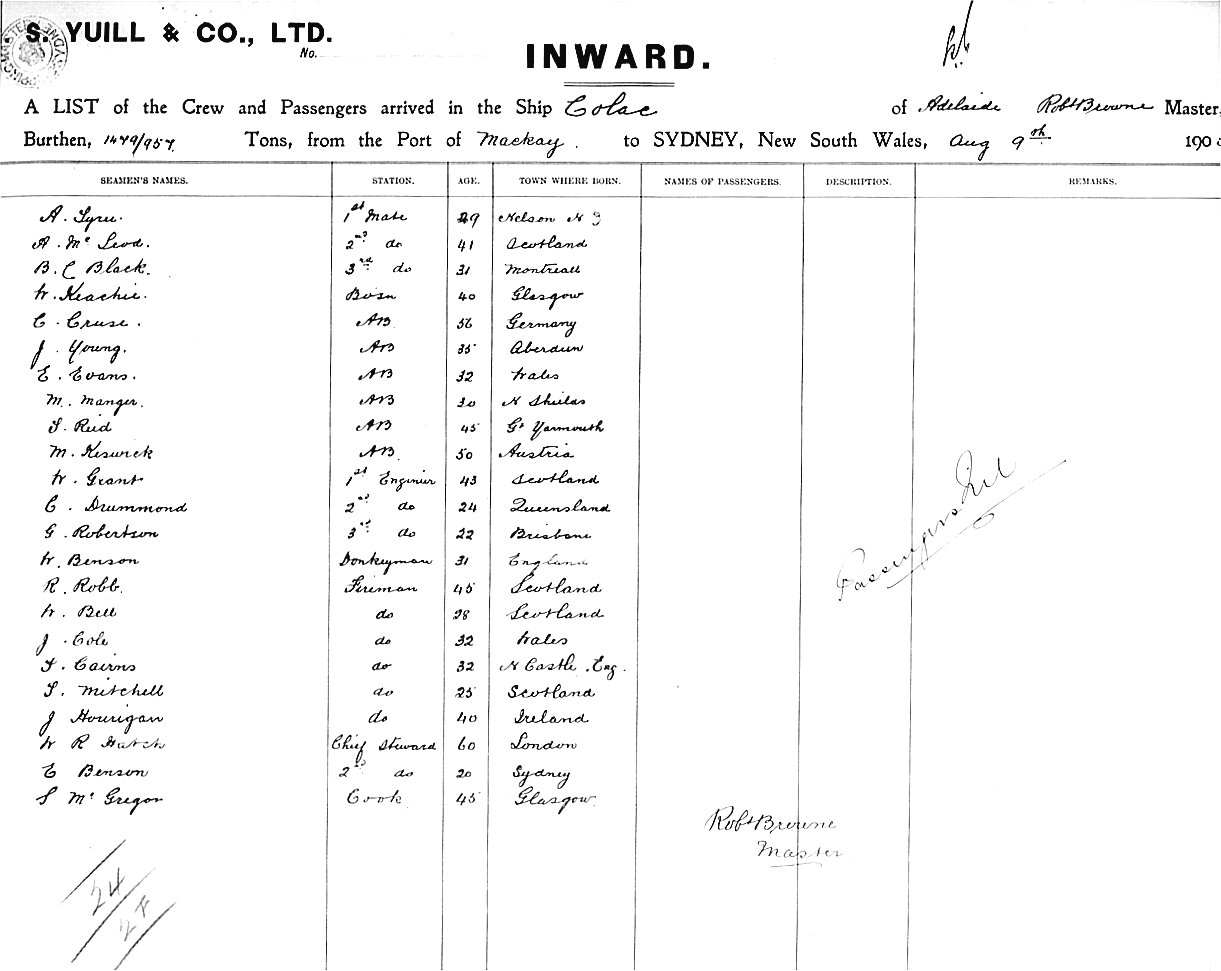 S. YUILL & CO., LTD.
No.
INWARD.
A LIST of the Crew and Passengers arrived in the Ship Colac of Adelaide Robt Browne Master,
Burthen, 1479/957 Tons, from the Port of Mackay. to SYDNEY, New South Wales, Aug 9th 190
SEAMEN'S NAMES. STATION. AGE. TOWN WHERE BORN. NAMES OF PASSENGERS. DESCRIPTION. REMARKS.
A. 1st Mate 29 Nelson N Z
A. Mc Leod. 2nd do 41 Scotland
B. C Black. 3rd do 31 Montreall
W. Keachie. Bosn 40 Glasgow
C. Cruse. AB 56 Germany
J. Young. AB 35 Aberdeen
E. Evans. AB 32 Wales
M. Manger. AB 30 N Shields
S. Reid AB 45 Gt Yarmouth
M. Keswick AB 50 Austria
W. Grant 1st Engineer 43 Scotland
C. Drummond 2nd do 24 Queensland
G. Robertson 3rd do 22 Brisbane
W. Benson Donkeyman 31 England
R. Robb. Fireman 45 Scotland
W. Bell do 28 Scotland
J. Cole do 32 Wales
F. Cairns do 32 N Castle. Eng.
S. Mitchell do 25 Scotland
J Hourigan do 40 Ireland
W R Hatch Chief Steward 60 London
E Benson 2nd do 20 Sydney
S Mc Gregor Cook 45 Glasgow
Passengers Nil
Robt Browne
Master
24